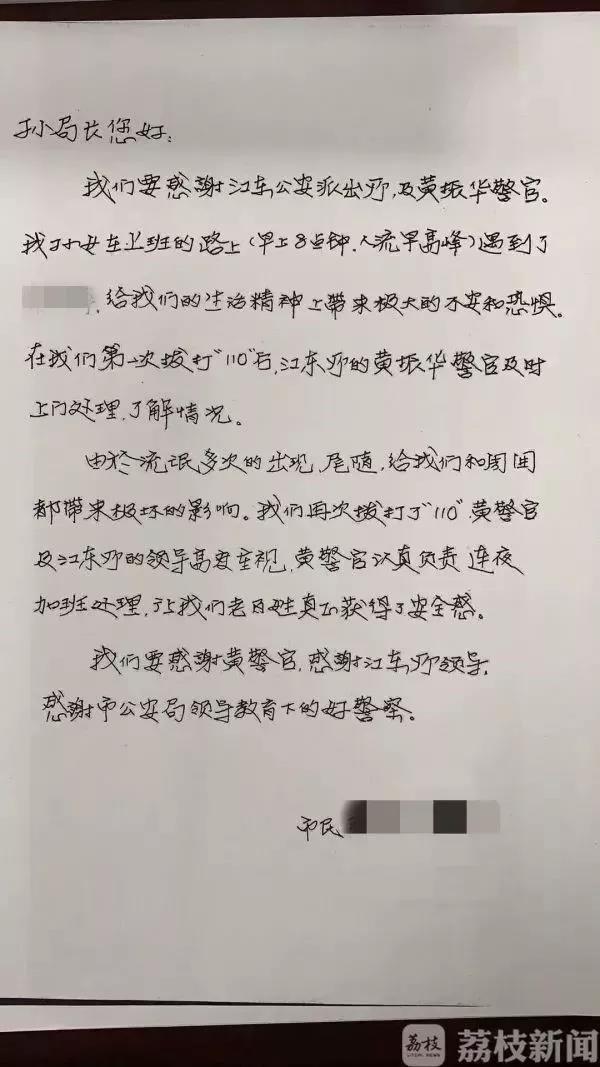 孙局长您好:
我们要感谢江东公安派出所,及黄振华警官。
我于小女在上班的路上(早上8点钟.人流早高峰)遇到了
,给我们的生活精神上带来极大的不安和恐惧。
在我们第一次拔打"110"后,江东所的黄振华警官及时
上门处理,了解情况。
由於流氓多次的出现,尾随,给我们和周围
都带来极坏的影响。我们再次拔打了"110",黄警官
及江东所的领导高度重视,黄警官认真负责 连夜
加班处理,让我们老百姓真正获得了安全感。
我们要感谢黄警官,感谢江东所领导,
感谢市公安局领导教育下的好警察。
市民
荔枝
LITCHI NEWS
荔枝新闻